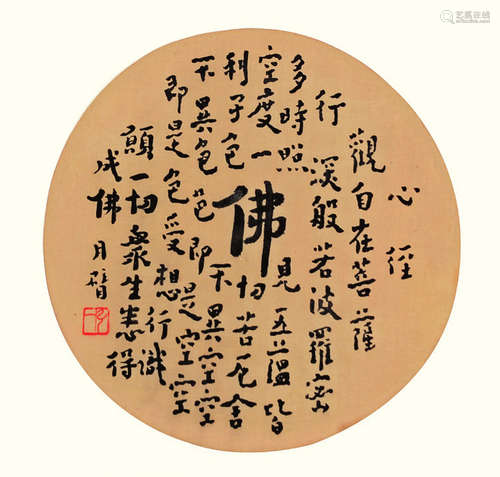 心經
觀自在菩薩
行深般若波羅密
多時照見五蘊皆
空度一切苦厄舍
利子色不異空空
不異色色即是空空
即是色受想行識
願一切眾生悉得
成佛 月臂
佛
艺狐在线
artfoxlive.com